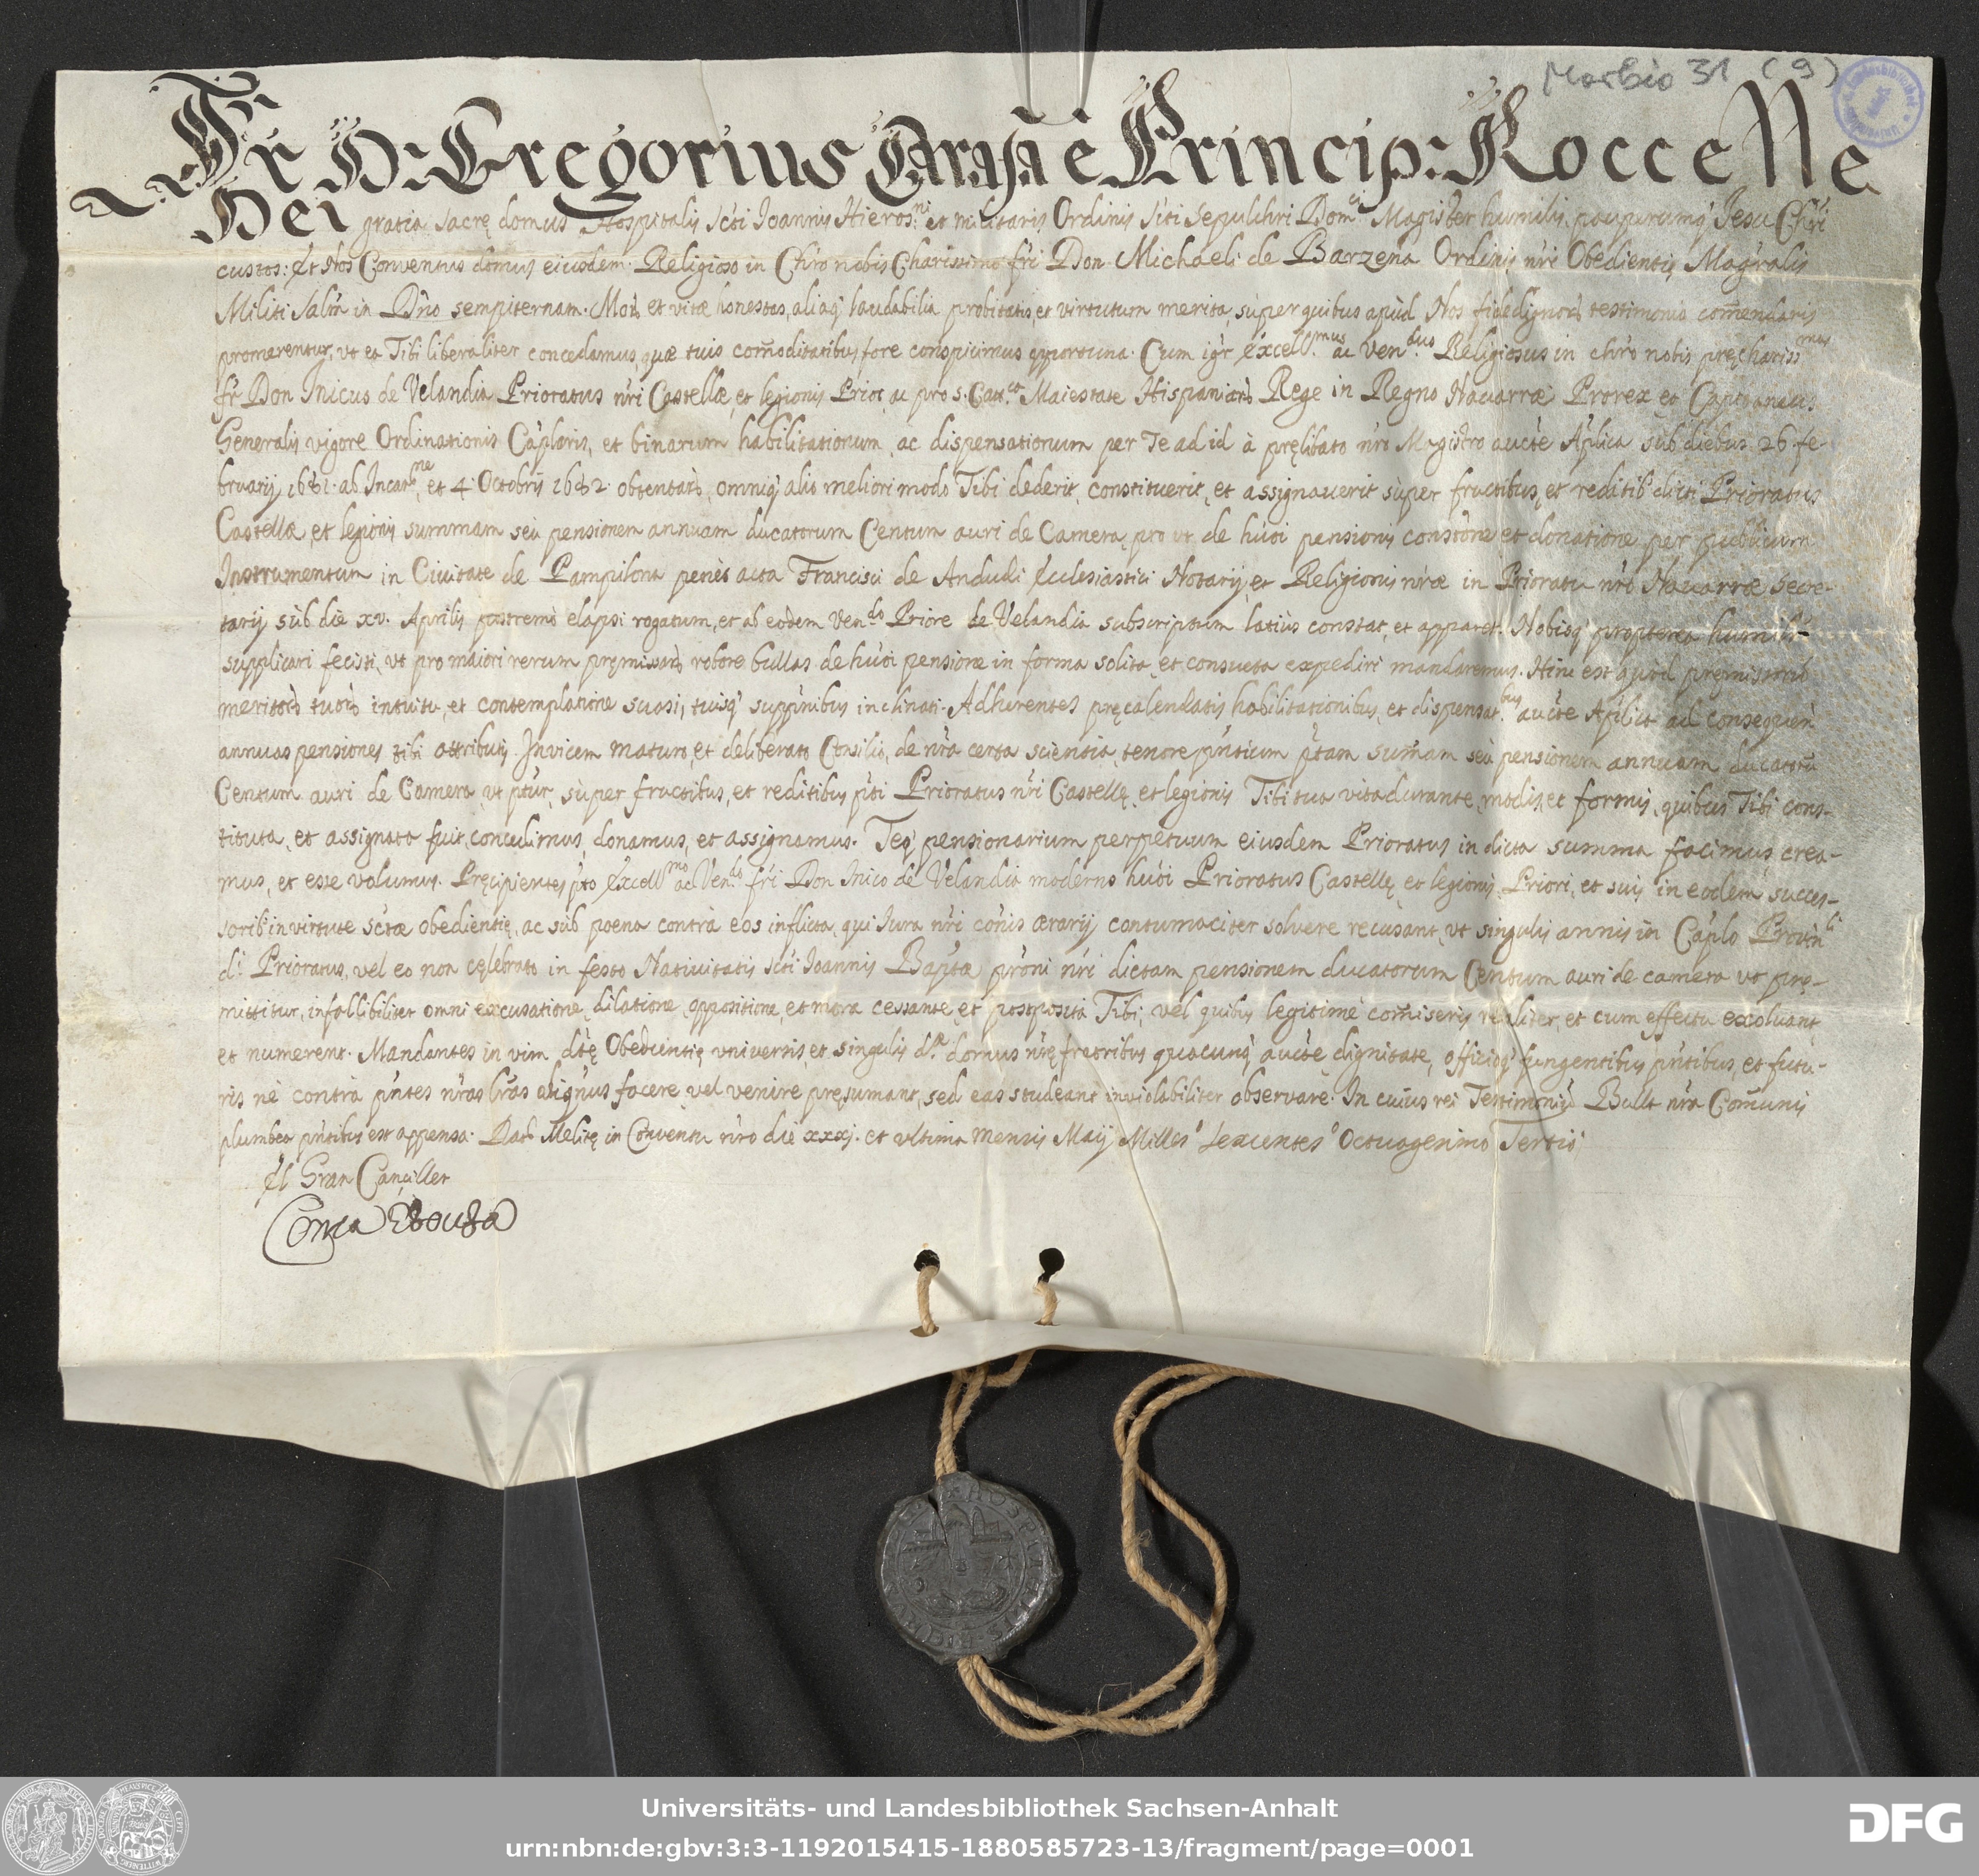 Morbio 31 (9)
Fr. D: Gregorius Carafa è Princip: Roccelle
Dei gratia sacrę domus Hospitalis scti Ioannis Hieros.ni et militaris Ordinis sčti sepulchri Dom.ci Magister humilis, pauperumq' Jesu Chri
custos: Et Nos Conventus domus eiusdem. Religioso in Chro nobis Charissimo fri Don Michaeli de Barzena Ordinis nri Obedientię Magralis
Militi Salm in Dno sempiternam. Mor et vitæ honestas, aliaq' laudabilia probitatis, et virtutum merita, super quibus apud Nos fidedignor testimonio comendaris
promerentur, vt ea Tibi liberaliter concedamus, quæ tuis comoditatibus fore conspicimus opportuna. Cum igr Excell.mus ac Ven.dus Religiosus in chro nobis pręchariss.mus
fr Don Inicus de Velandia Prioratus nri Castellæ, et legionis Prior, ac pro s. Catt.ca Maiestate Hispaniar Rege in Regno Navarræ Prorex et Capitaneus
Generalis vigore Ordinationis Caplaris, et binarum habilitationum, ac dispensationum per Te ad id à pręlibato nro Magistro aucte Aplica sub diebus 26 fe-
bruarij 1681. ab Incar.ne, et 4. Octobris 1682. obtentar, omniq' alio meliori modo Tibi dederit, constituerit, et assignauerit super fructibus, et reditib' dicti Prioratus
Castellæ, et legionis summam seù pensionem annuam ducatorum Centum auri de Camera, pro vt de huoi pensionis constone et donatione per publicum
Instrumentum in Civitate de Pampilona penès acta Francisci de Andudi Ecclesiastici Notarij, et Religionis nræ in Prioratu nro Navarræ Secre-
tarij sub die xv. Aprilis postremò elapsi rogatum, et ab eodem Ven.do Priore de Velandia subscriptum latiùs constat, et apparet. Nobisq' propterea humilr
supplicari fecisti, vt pro maiori rerum pręmissar robore bullas de huoi pensione in forma solita, et consueta expediri mandaremus. Hinc est quod pręmissorum
meritor tuor intuitu, et contemplatione suasi, tuisq' supp'nibus inclinati. Adhærentes pręcalendatis habilitationibus, et dispensat.bus aucte Aplica ad consequen
annuas pensiones tibi attributis. Invicem maturo, et deliberato Consilio, de nra certa scientia, tenore pntium ptam sumam seù pensionem annuam ducatoru
Centum auri de Camera, vt ptur, super fructibus, et reditibus pti Prioratus nri Castellę, et legionis Tibi tua vita durante, modis, et formis, quibus Tibi cons-
tituta, et assignata fuit, concedimus, donamus, et assignamus. Teq' pensionarium perpetuum eiusdem Prioratus in dicta summa facimus crea-
mus, et esse volumus. Pręcipientes pto Excell.mo ac Ven.do fri Don Inico de Velandia moderno huoi Prioratus Castellę et legionis Priori, et suis in eodem succes-
sorib' in virtute sctæ obedientię, ac sub poena contrà eos inflicta, qui Iura nri cois ærarij contumaciter solvere recusant, vt singulis annis in Caplo Provin.li
d.i Prioratus, vel eo non cęlebrato in festo Nativitatis scti Ioannis Baptæ proni nri dictam pensionem ducatorum Centum auri de camera vt prę-
mittitur, infallibiliter omni excusatione, dilatione, oppositione, et mora cessante, et postposita Tibi, vel quibus legitimè comiseris realiter, et cum effectu exoluant,
et numerent. Mandantes in vim dtę Obedientię vniversis, et singulis d.æ domus nrę fratribus quacunq' aucte dignitate, officioq' fungentibus pntibus, et futu-
ris nè contrà pntes nras lras aliq'nus facere vel venire pręsumant, sed eas studeant inviolabiliter observare. In cuius rei Testimoniu Bulla nra Comunis
plumbea pntibus est appensa. Dat Melitę in Conventu nro die xxxj. et ultima mensis Maij Milles.o sexcentes.o Octuagesimo Tertio.
El Gran Canciller
Universitäts- und Landesbibliothek Sachsen-Anhalt
urn:nbn:de:gbv:3:3-1192015415-1880585723-13/fragment/page=0001
DFG